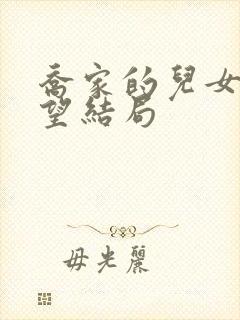 喬家的兒女
望結局
毋光麗